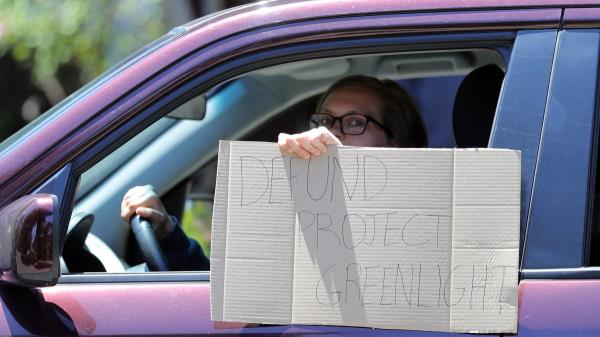 DEFUND
PROJECT
GREENLIGHT